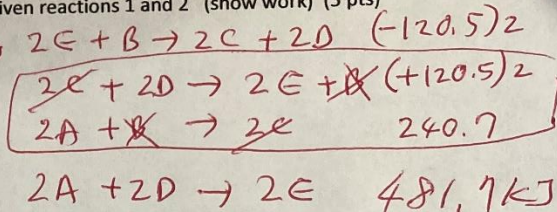 iven reactions 1 and 2 (show work) (5 pts)
2E + B → 2C + 2D (-120.5)2
2C + 2D → 2E + B (+120.5)2
2A + B → 2C 240.7
2A + 2D → 2E 481.7kJ